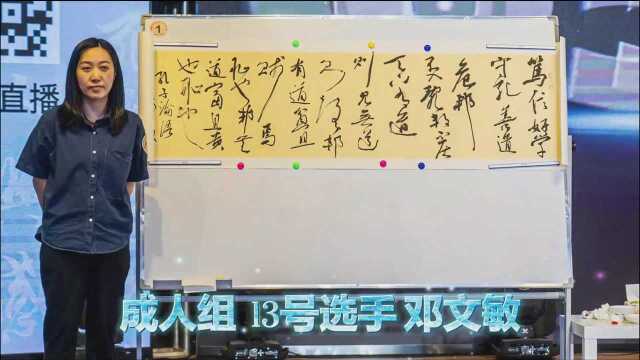 1
篤信好學
守死善道
危邦
不入亂邦不居
天下有道
則見無道
則隱邦
有道貧且
賤焉
恥也邦無
道富且貴
孔子論語
直播
成人组 13号选手 邓文敏